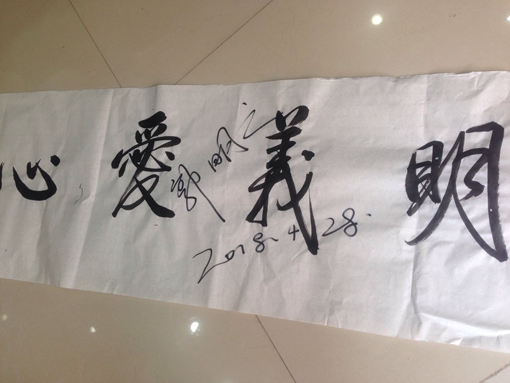 明義愛心
郭明义
2018.4.28.